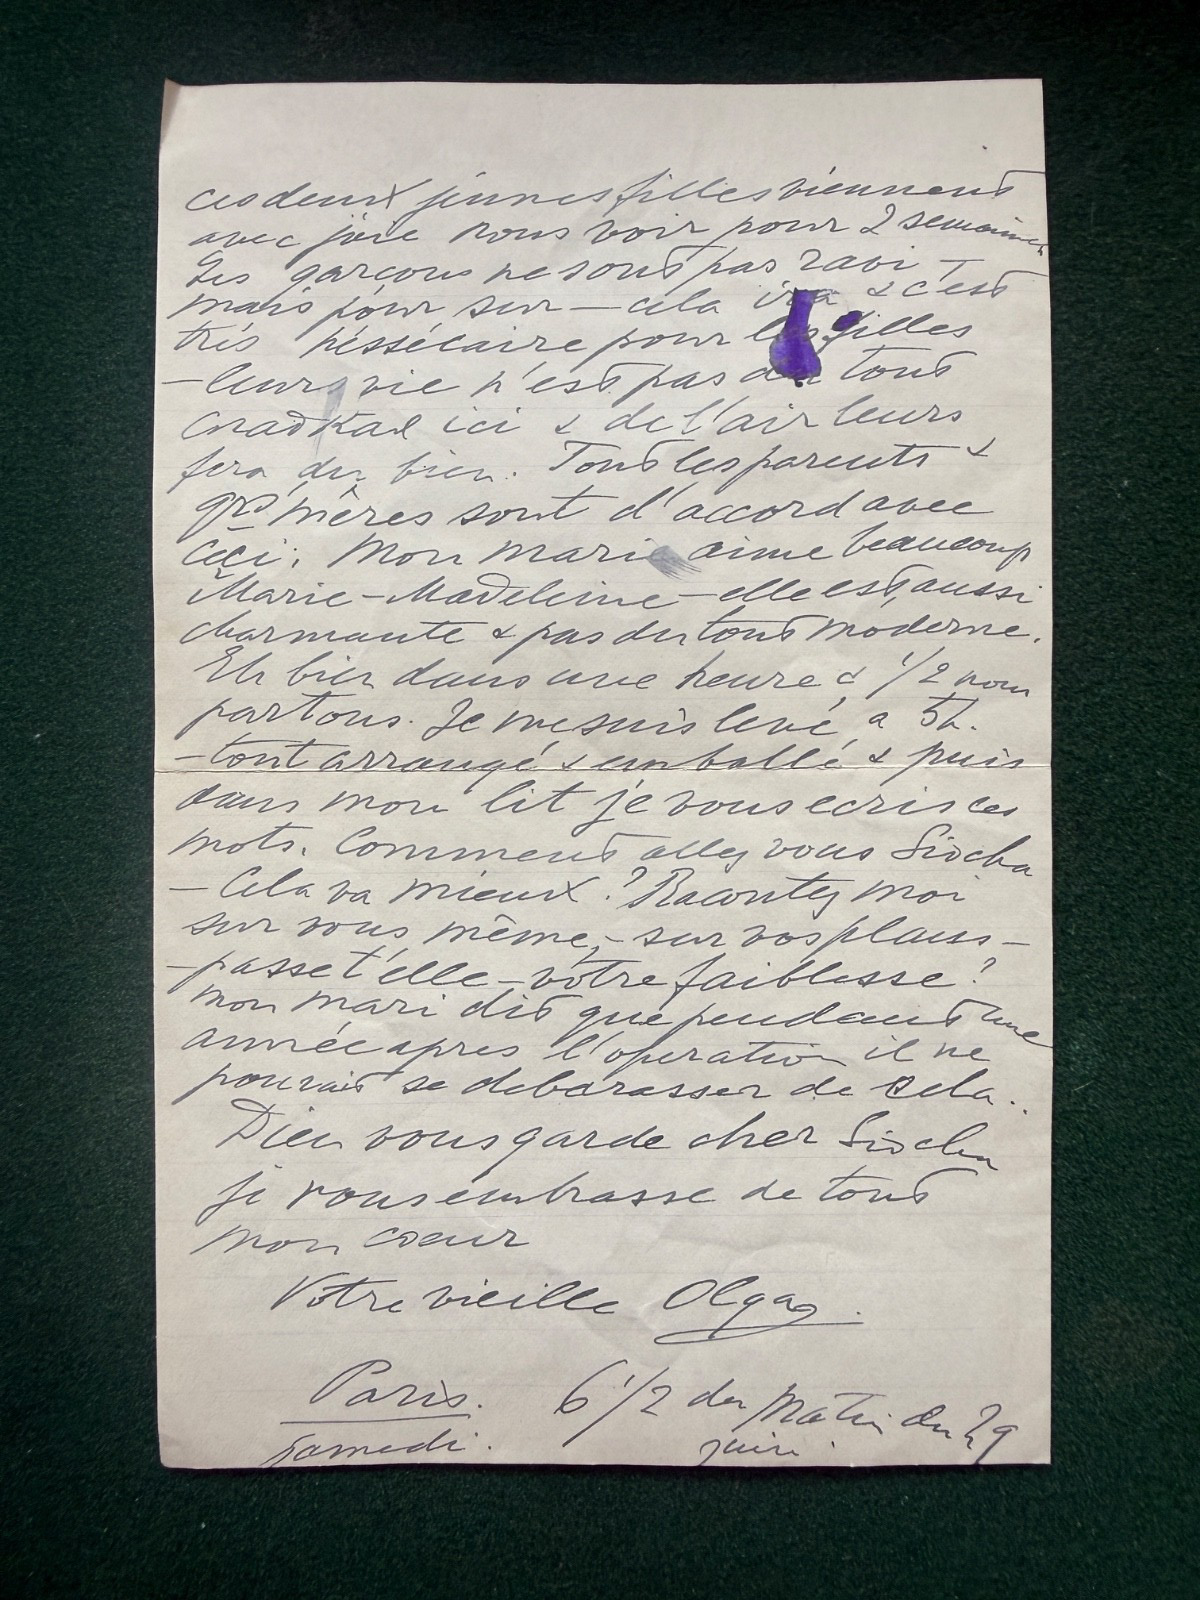 ces deux jeunes filles viennent
avec joie nous voir pour 2 semaines
Les garçons ne sont pas ravi –
mais pour sur – cela ira & c'est
très néssécaire pour les filles
– leurs vie n'est pas du tout
ici & de l'air leurs
fera du bien. Tous les parents &
grds mères sont d'accord avec
ceci. Mon mari aime beaucoup
Marie-Madeleine – elle est aussi
charmante & pas du tout moderne.
Eh bien dans une heure & 1/2 nous
partons. Je me suis levé a 5h.
– tout arrangé & emballé & puis
dans mon lit je vous ecris ces
mots. Comment allez vous Siocha
– Cela va mieux? Racontez moi
sur vous même, – sur vos plans –
– passe t'elle – vôtre faiblesse?
mon mari dit que pendant une
année apres l'operation il ne
pouvait se debarasser de cela.
Dieu vous garde cher Siocha
je vous embrasse de tout
mon coeur
Votre vieille Olga.
Paris. 6 1/2 du Matin du 29
samedi. juin.